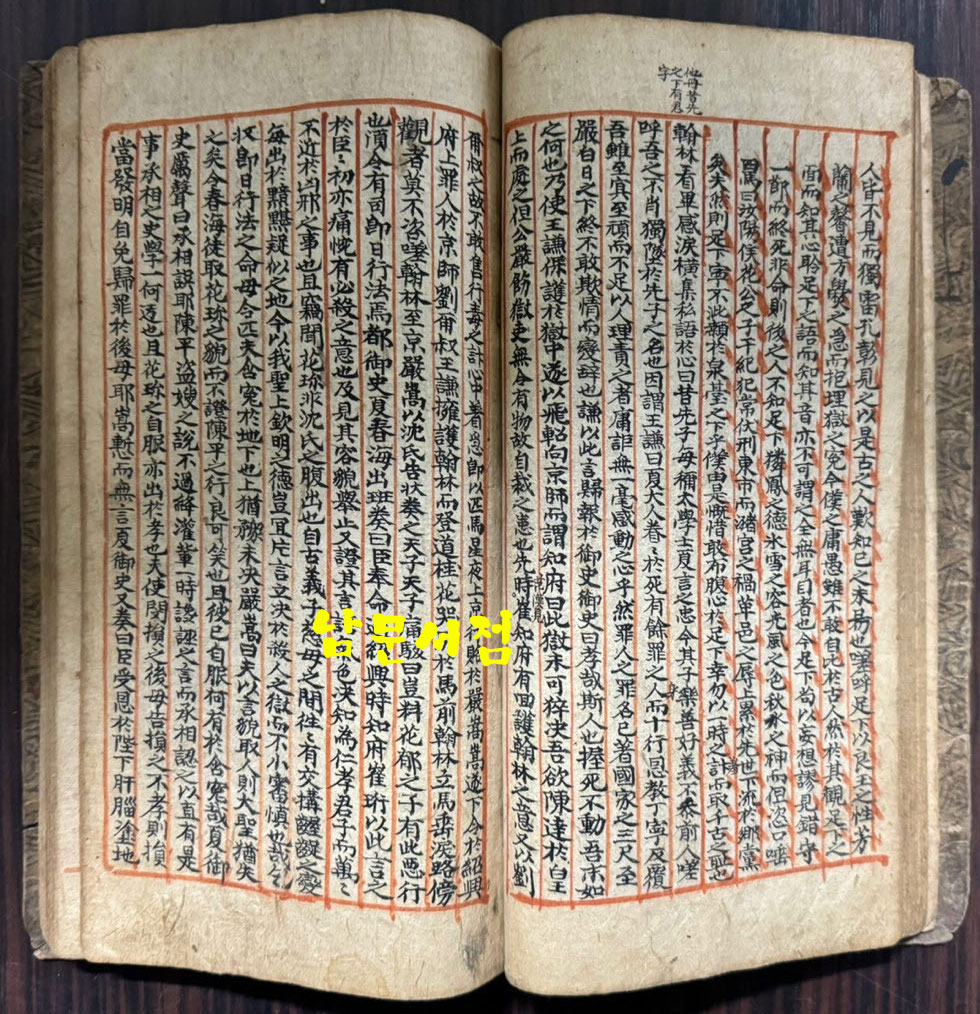 他冊昔先
之下有君
字
人皆不見而獨雷孔彰見之以是古之人歎知己之未易也嗟呼足下以良玉之性芳
蘭之馨遭方學之急而抱理獄之寃今僕之庸愚雖不敢自比於古人然於其觀足下之
面而知其心聆足下之語而知其音亦不可謂之全無耳目者也今足下苟以妄想謬見錯守
一節而終死非命則後之人不知足下獜鳳之德氷雪之容光風之色秋水之神而但恣口嗤
罵曰汝陽侯花公之子干紀犯常伏刑東市而瀦宮之禍革邑之辱上累於先世下流於鄕黨
矣夫然則足下寧不泚顙於泉臺之下乎僕由是慨惜敢布腹心於足下幸勿以一時之計而取千古之恥也
翰林看畢感淚橫集私語於心曰昔先子每稱太學士夏言之忠今其子樂善好義不忝前人嗟
呼吾之不肖獨墜於先子之名也因謂王謙曰夏大人眷〻於死有餘罪之人而十行恩教丁寧反覆
吾雖至冥至頑而不足以人理責之者庸詎無一毫感動之心乎然罪人之罪名已著國家之三尺至
嚴白日之下終不敢欺情而變辭也謙以此言歸報於御史御史曰孝哉斯人也握死不動吾未如
之何也乃使王謙保護於獄中遂以飛軺向京師而謂知府曰此獄未可猝决吾欲陳達於白王
上而處之但公嚴飭獄吏無令有物故自裁之患也先時崔知府有回護翰林之意又以劉
花漢見
甭叔之故不敢售行毒之計心中着急卽以匹馬星夜上京行賂於嚴嵩嵩遂下令於紹興
府上罪人於京師劉甭叔王謙擁護翰林而登道桂花哭於馬前翰林立馬垂淚路傍
觀者莫不咨嗟翰林至京嚴嵩以沈氏告狀奏之天子天子痛駭曰豈料花郁之子有此惡行
也須令有司卽日行法焉都御史夏春海出班奏曰臣奉命過紹興時知府崔珩以此言之
於臣〻初亦痛忱有必殺之意也及見其容貌擧止又證其言語氣色決知為仁孝君子而萬〻
不近於凶邪之事也且竊聞花珎非沈氏之腹出也自古義子慈母之間徃〻有交搆齟齬之變
每出於黯黮疑似之地今以我聖上欽明之德豈宜片言立决於殺人之獄而不小審愼也哉乞
收卽日行法之命毋令匹夫含寃於地下也上猶豫未决嚴嵩曰夫以言貌取人則大聖猶失
之矣今春海徒取花珎之貌而不證陳平之行良可笑也且彼已自服何有於含寃哉夏御
史厲聲曰承相誤耶陳平盜嫂之說不過絳灌輩一時讒誣之言而承相認之以直有是
事承相之史學一何透也且花珎之自服亦出於孝也夫使閔損之後母告損之不孝則損
當發明自免歸罪於後母耶嵩慙而無言夏御史又奏曰臣受恩於陛下肝腦塗地
남문서점